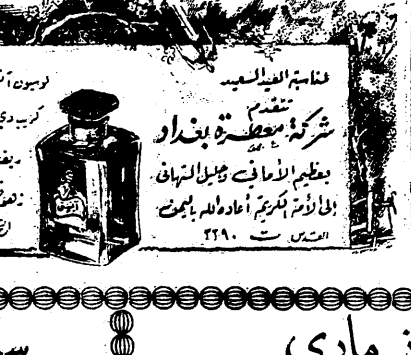 بمناسبة العيد السعيد
تتقدم
شركة معطرة بغداد
بعظيم الأماني وجليل التهاني
إلى الأمة الكريمة أعاده الله باليمن
القدس ت ٢٢٩٠
لوسيون
كريم دي